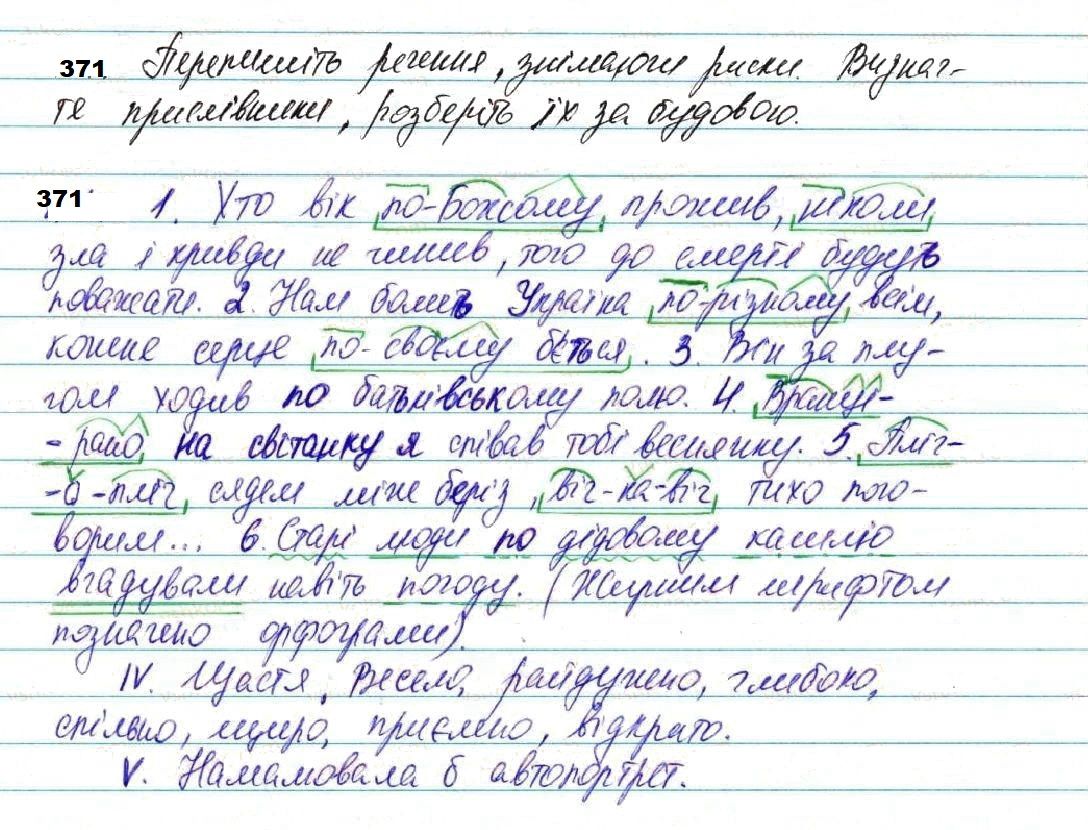 371 Перепишіть речення, знімаючи риски. Визнач-
те прислівники, розберіть їх за будовою.
371 1. Хто вік по-Божому прожив, ніколи
зла і кривди не чинив, того до смерті будуть
поважати. 2. Нам болить Україна по-різному всім,
кожне серце по-своєму б'ється. 3. Він за плу-
гом ходив по батьківському полю. 4. Вранці-
-рано на світанку я співав тобі веснянку. 5. Пліч-
-о-пліч сядем між беріз, віч-на-віч тихо пого-
ворим... 6. Старі люди по дідовому кашлю
вгадували навіть погоду. (Жирним шрифтом
позначено орфограми).
IV. Щастя, Весело, райдужно, глибоко,
спільно, щиро, приємно, відкрито.
V. Намалювала б автопортрет.